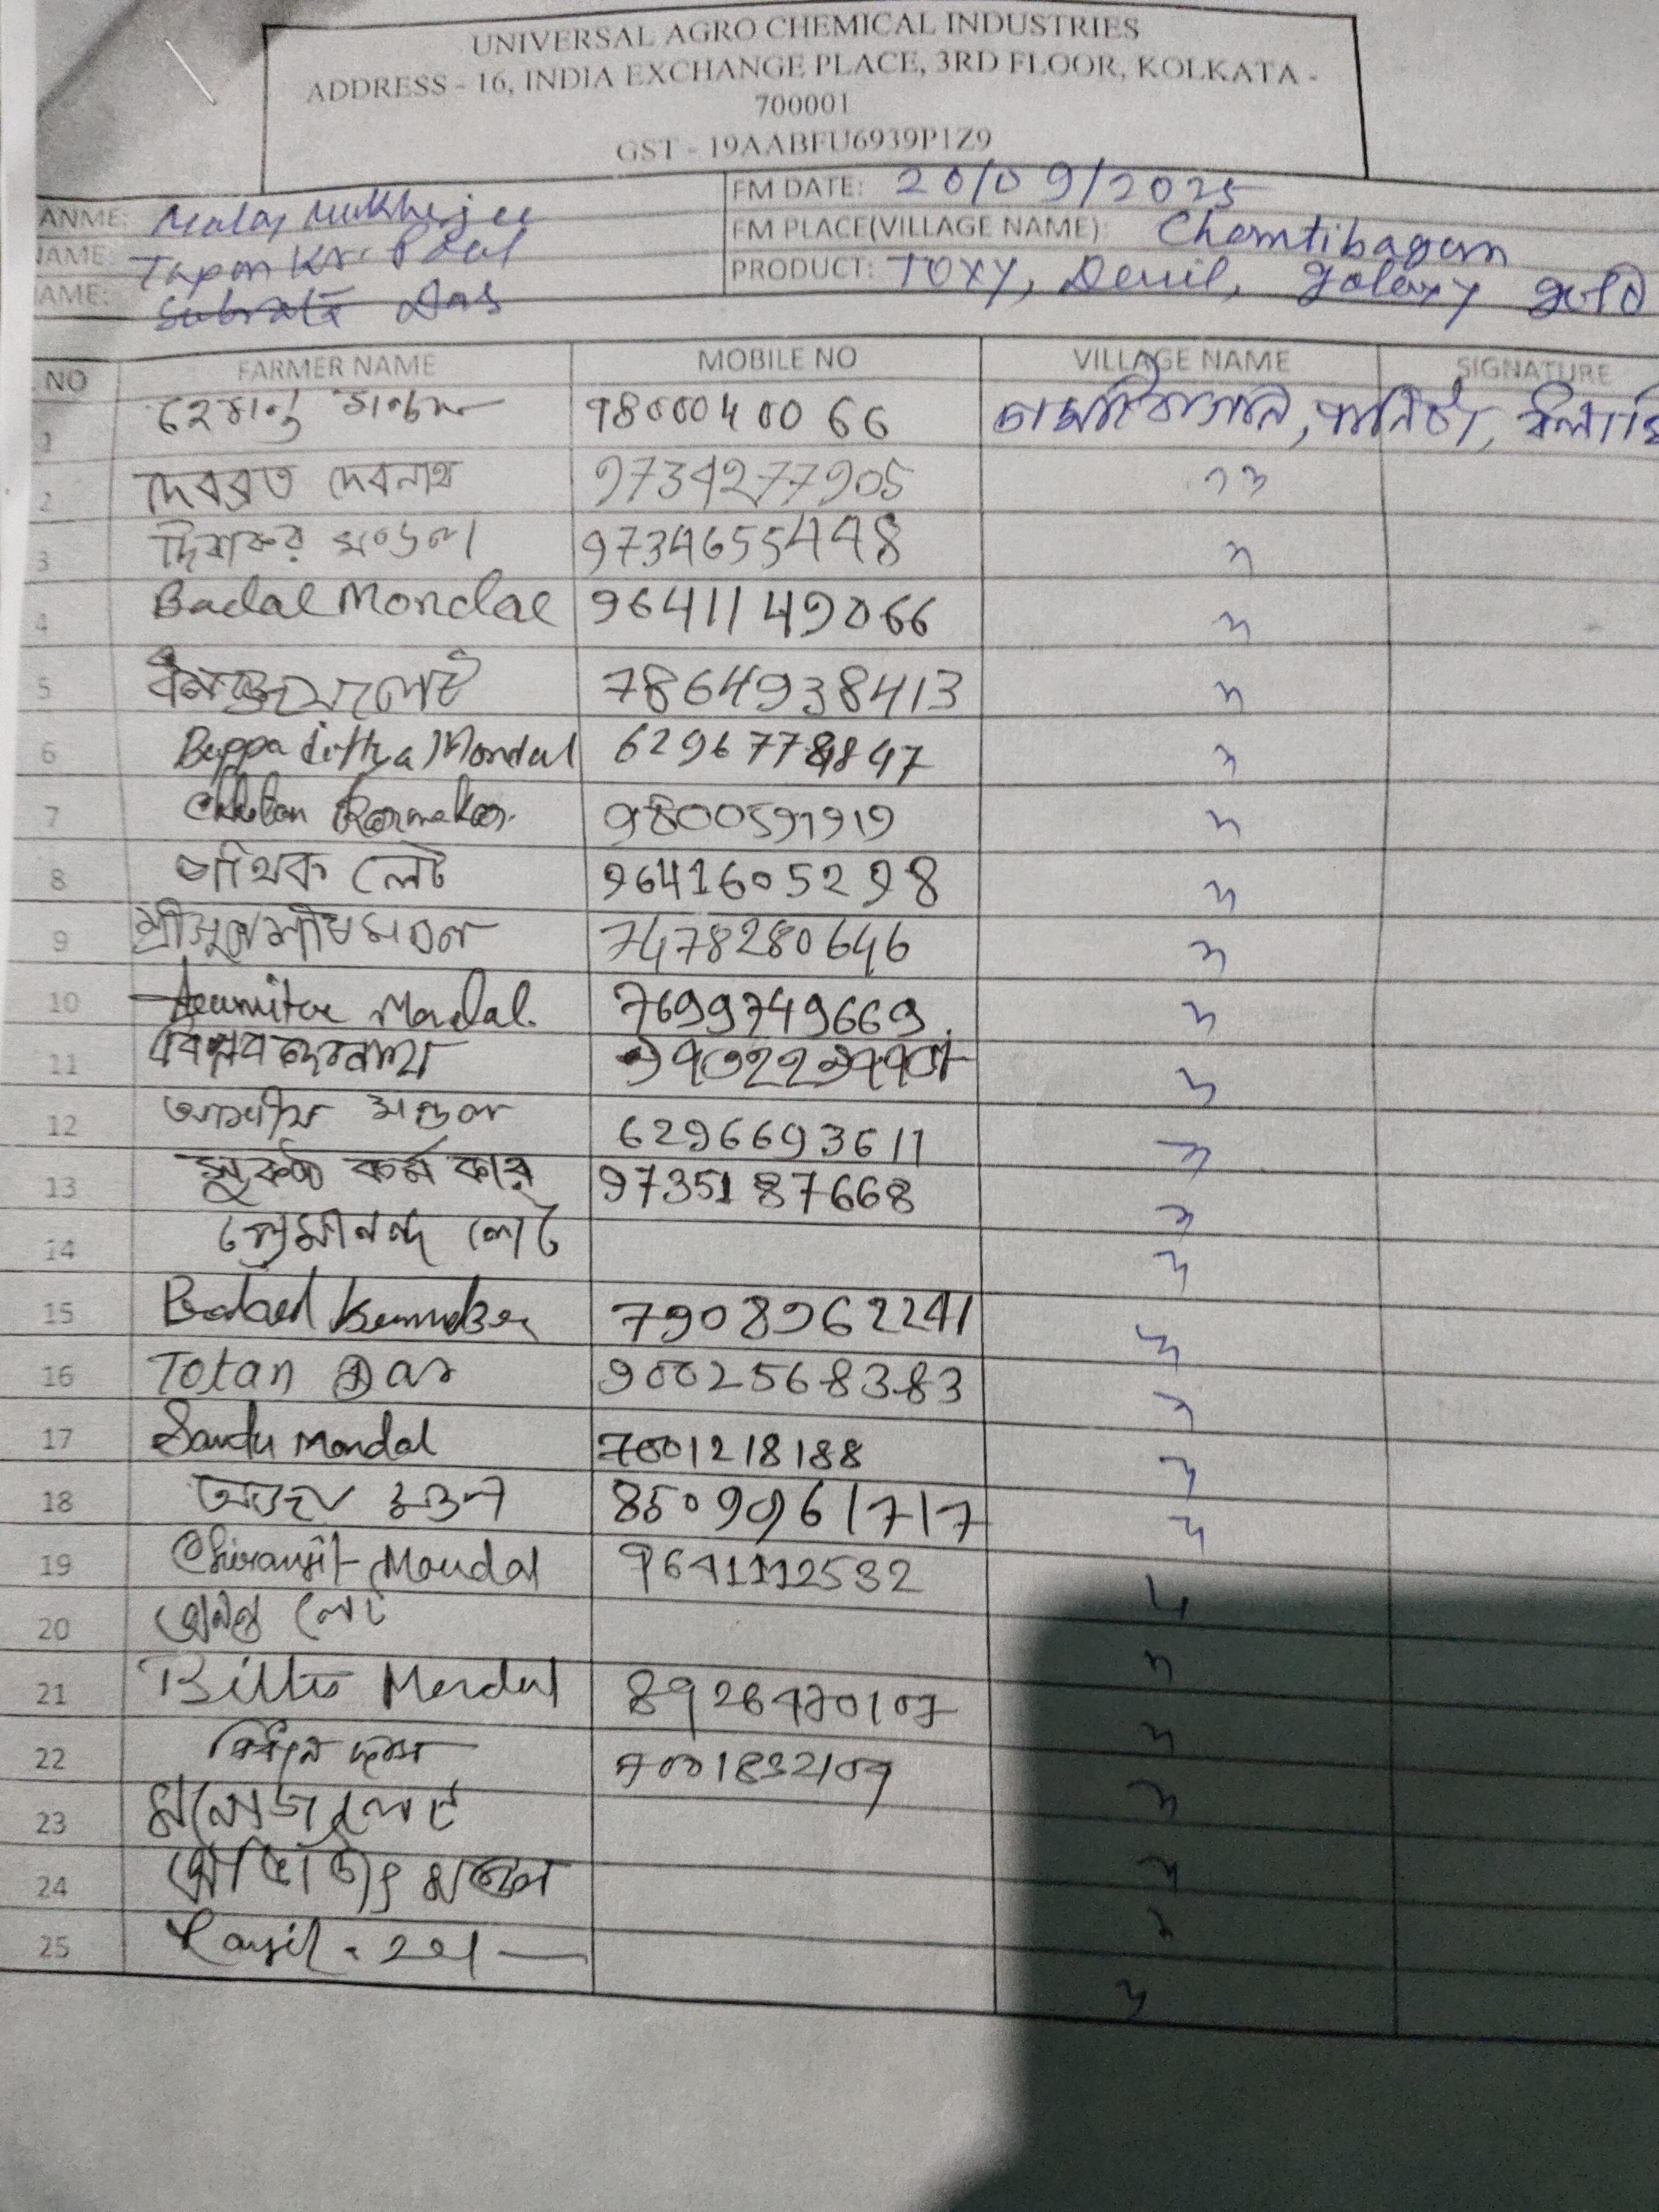 UNIVERSAL AGRO CHEMICAL INDUSTRIES
ADDRESS - 16, INDIA EXCHANGE PLACE, 3RD FLOOR, KOLKATA -
700001
GST - 19AABFU6939P1Z9
ANME: Malay Mukherjee FM DATE: 20/09/2025
NAME: Tapan Kr. Paul FM PLACE(VILLAGE NAME): Chamtibagan
AME: Subrata Das PRODUCT: TOXY, Devil, Galaxy gold
NO FARMER NAME MOBILE NO VILLAGE NAME SIGNATURE
1 হেমন্ত মন্ডল 9800040066
2 দেবব্রত দেবনাথ 9734277905
3 দিবাকর মণ্ডল 9734655448
4 Badal Mondal 9641149066
5 7864938413
6 Bappaditya Mondal 6296778847
7 Chhotan Karmakar. 9800591919
8 পথিক লেট 9641605298
9 7478280646
10 Mondal. 7699749669
11 বিপ্লব দেবনাথ
12 আশীষ মণ্ডল 6296693611
13 সুকন্ঠ কর্মকার 9735187668
14 প্রেমানন্দ লেট
15 7908962241
16 Totan Das 9002568383
17 Sandu Mondal 7001218188
18 অজয় মণ্ডল 8509961717
19 Chiranjit Mondal 9641112532
20 অনন্ত লেট
21 Mondal 8926470107
22 7001832107
23 মনোজ লেট
24 অভিজিৎ মণ্ডল
25